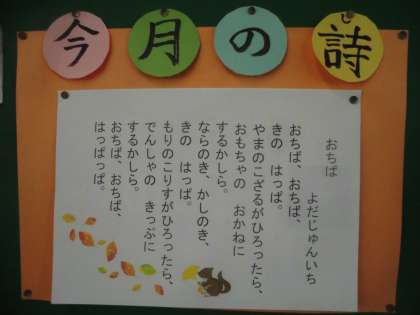 今月の詩
おちば
よだじゅんいち
おちば、おちば、
きの　はっぱ。
やまのこざるがひろったら、
おもちゃの　おかねに
するかしら。
ならのき、かしのき、
きの　はっぱ。
もりのこりすがひろったら、
でんしゃの　きっぷに
するかしら。
おちば、おちば、
はっぱっぱ。